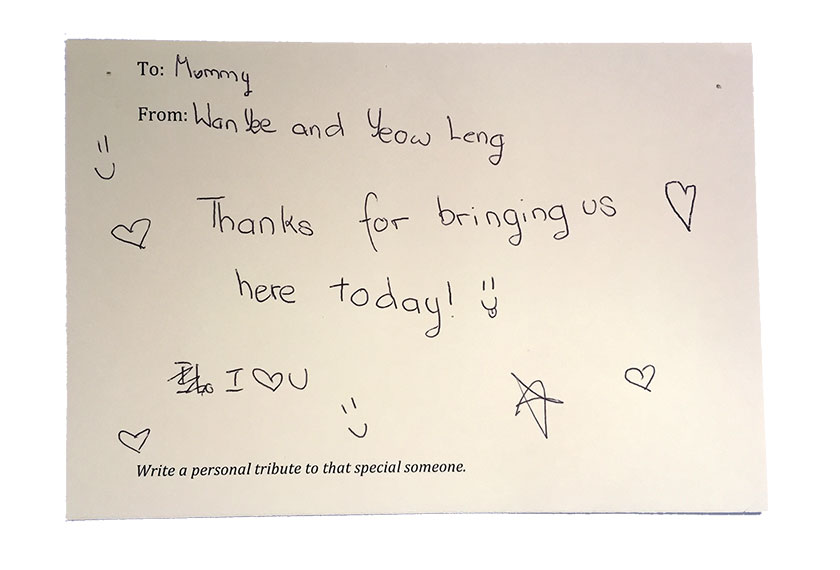 To: Mummy
From: Wan Yee and Yeow Leng
Thanks for bringing us
here today!
I ♡ U
Write a personal tribute to that special someone.